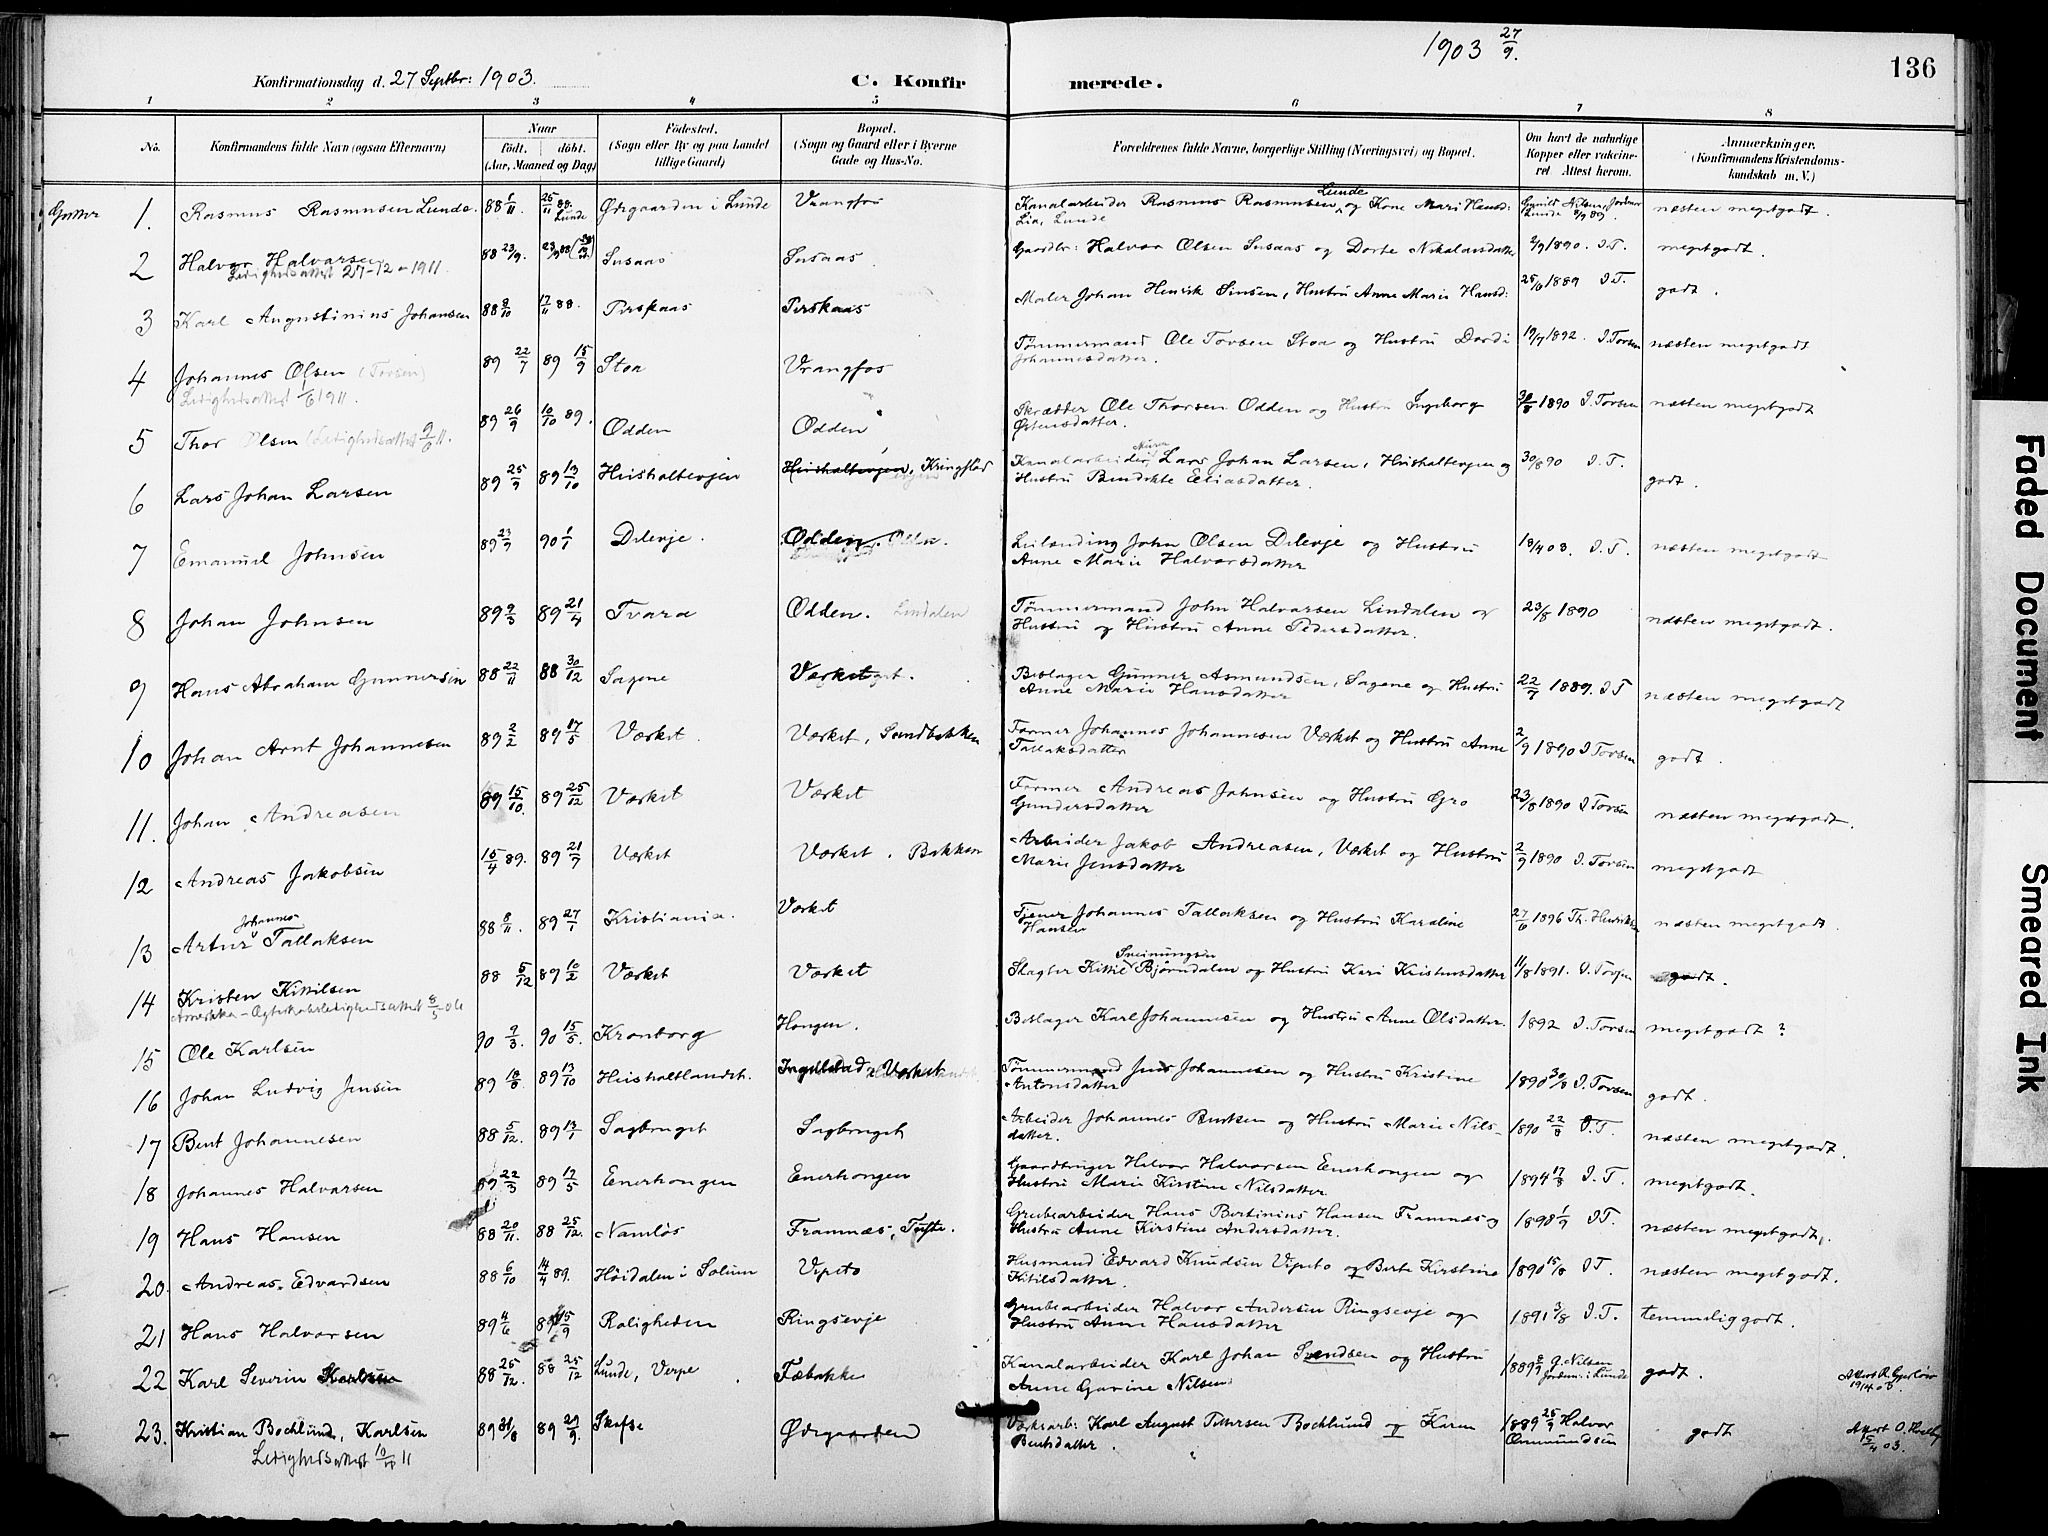 1903 27/9.
136
Konfirmationsdag d. 27 Septbr: 1903.
C. Konfirmerede.
1 2 3 4 5 6 7 8
No.
Konfirmandens fulde Navn (ogsaa Efternavn)
Naar
født. døbt.
(Aar, Maaned og Dag)
Fødested.
(Sogn eller By og paa Landet
tillige Gaard)
Bopæl.
(Sogn og Gaard eller i Byerne
Gade og Hus-No.
Forældrenes fulde Navne, borgerlige Stilling (Næringsvei) og Bopæl.
Om havt de naturlige
Kopper eller vakcine-
ret Attest herom.
Anmærkninger.
(Konfirmandens Kristendoms-
kundskab m. V.)
Gutter 1. Rasmus Rasmusen Lunde. 88 25/11 88. Lunde Ødegaarden i Lunde Vrangfos Kanalarbeider Rasmus Rasmusen Lunde og Kone Mari Hansd: næsten megetgodt.
Lia, Lunde
2 Halvor Halvarsen 88 23/9. Susaas Susaas. Gaardbr: Halvor Olsen Susaas og Dorte Nikolaisdatter 2/9 1890. I.T. megetgodt.
Ledighedsattest 27-12-1911.
3 Karl Augustinius Johansen 88 8/10 17/11 88. Perskaas Perskaas Maler Johan Henrik Simsen, Hustru Anne Marie Hansd: 25/6 1889 I T. godt.
4 Johannes Olsen (Torsen) 89 22/7 89 15/9 Stoa Vrangfos Tømmermand Ole Torsen Stoa og Hustru Dordi 19/7 1892. I. Torsen næsten megetgodt
Johannesdatter.
Ledighedsattest 1/6 1911.
5 Thor Olsen (Ledighedsattest 9/6 11. 89 26/9 10/10 89. Odden Odden Skrædder Ole Thorsen Odden og Hustru Ingeborg 30/8 1890 I. Torsen næsten megetgodt
Østensdatter.
6 Lars Johan Larsen 89 25/9 89 13/10 Husholtevjen Husholtevjen, Kringstad Kanalarbeider, Lars Johan Larsen, Husholtevjen og 30/8 90 I. T. godt.
Hustru Bendikte Eliasdatter.
7 Emanuel Johnsen 89 23/9 90 1/1 Dilevje. Odden. Leilænding John Olsen Dilevje og Hustru 18/4 03. I. T. næsten megetgodt
Anne Marie Halvorsdatter
8 Johan Johnsen 89 9/3 89 21/4 Tvara Odden. Lindalen Tømmermand John Halvarsen Lindalen og 23/8 1890 næsten megetgodt.
Hustru og Hustru Anne Pedersdatter.
9 Hans Abraham Gunnersen 88 22/11 88 30/12 Sagene Værket. Beslager Gunner Asmundsen, Sagene og Hustru 22/7 1889. I T næsten megetgodt
Anne Marie Hansdatter
10 Johan Arnt Johannesen 89 2/2 89 17/5 Værket. Værket, Sandbakken Former Johannes Johannesen Værket og Hustru Anne 2/9 1890 I Torsen godt.
Tallaksdatter
11. Johan Andreasen 89 15/10. 89 25/12 Værket Værket Former Andreas Johnsen og Hustru Gro 23/8 1890 I Torsen næsten megetgodt.
Gundersdatter
12 Andreas Jakobsen 15/4 89. 89 21/7 Værket Værket. Bakken Arbeider Jakob Andreasen, Værket og Hustru 2/9 1890 I. Torsen megetgodt
Marie Jensdatter
13 Artur Johannes Tallaksen 88 8/11. 89 27/1 Kristiania. Værket Tjener Johannes Tallaksen og Hustru Karoline 27/6 1896 Th. næsten megetgodt.
Hansen
14 Kristen Kittilsen 88 5/12 89 10/2 Værket Værket Slagter Kittil Sveinungsen Bjørndalen og Hustru Kari Kristensdatter 11/8 1891. I. Torsen godt.
Amerika - Ægteskabsledighedsattest 8/5-06
15 Ole Karlsen 90 7/3. 90 15/5. Kronborg Hongen. Beslager Karl Johannesen og Hustru Anne Olsdatter. 1892 I. Torsen megetgodt?
16 Johan Ludvig Jensen 89 18/8 89 13/10 Husholtlandst. Tømmermand Jens Johannesen og Hustru Kristine 1890 30/8 I. Torsen godt.
Antonsdatter
17 Bent Johannesen 88 5/12. 89 13/1 Sagbruget Sagbruget Arbeider Johannes Bentsen og Hustru Marie Nils- 1890 22/8 I.T. næsten megetgodt.
datter.
18 Johannes Halvarsen 89 22/3 89 17/5 Enerhongen Enerhongen Gaardbruger Halvor Halvarsen Enerhongen og 1894 17/8 I. T. megetgodt.
Hustru Marie Kirstine Nilsdatter.
19 Hans Hansen 88 20/11. 88 25/12. Namløs Framnæs, Tufte. Grubearbeider Hans Bertinius Hansen Framnæs og 1898 1/9 I T. næsten megetgodt.
Hustru Anne Kirstine Andersdatter.
20. Andreas Edvardsen 88 6/10 14/4 89. Høidalen i Solum Vipeto Husmand Edvard Knudsen Vipeto og Berte Kirstine 1890 15/8 I T. næsten megetgodt.
Kitilsdatter.
21 Hans Halvarsen 89 4/6 89 15/9 Roligheden Ringsevje Grubearbeider Halvor Andersen Ringsevje og 1891 3/8 I. T. temmelig godt.
Hustru Anne Hansdatter
22 Karl Severin Karlsen 88 25/12. 88 25/12 Lunde, Verpe Fæbakke Kanalarbeider Karl Johan Svendsen og Hustru 1889 G. Nilsen godt.
Anne Gurine Nilsen Jordm: i Lunde
23. Kristian Bochlund, Karlsen 89 31/8 89 29/9. Skifse Ødegaarden Værksarb: Karl August Petersen Bochlund og Karen 1889 25/9 Halvor godt
Bentsdatter. Asmundsen
Ledighedsattest 10/11 11
Faded Document
Smeared Ink